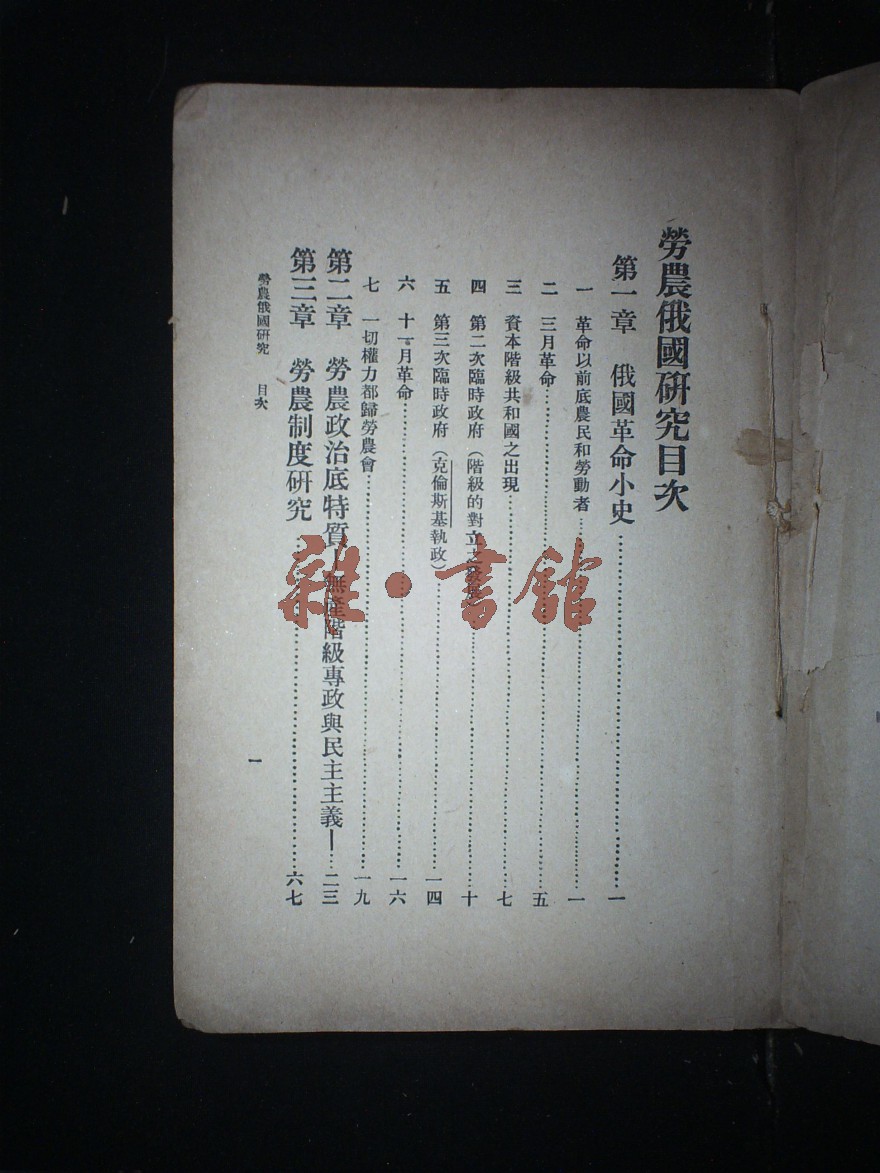 勞農俄國研究目次
第一章 俄國革命小史……一
一 革命以前底農民和勞動者……一
二 三月革命……五
三 資本階級共和國之出現……七
四 第二次臨時政府（階級的對立之發展）……十
五 第三次臨時政府（克倫斯基執政）……一四
六 十一月革命……一六
七 一切權力都歸勞農會……一九
第二章 勞農政治底特質—無產階級專政與民主主義—……二三
第三章 勞農制度研究……六七
勞農俄國研究 目次
一
雜·書館